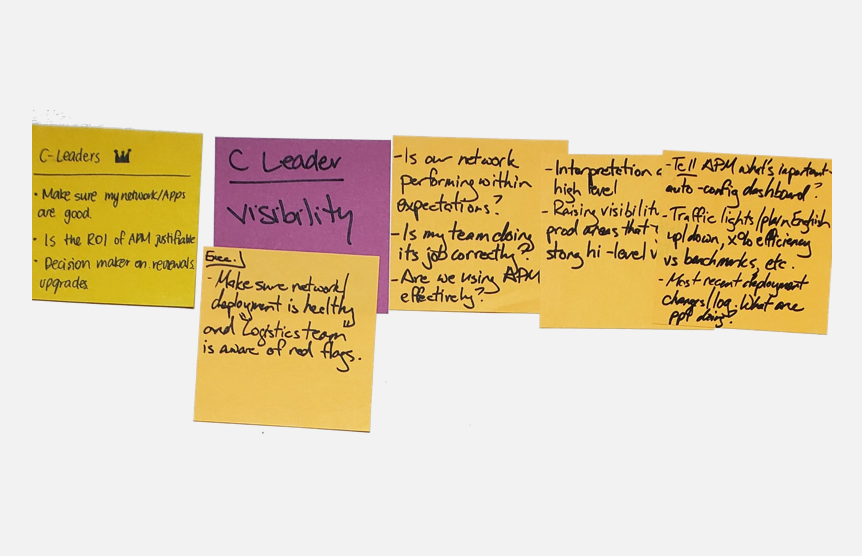 C-Leaders
• Make sure my network/Apps
are good.
• Is the ROI of APM justifiable
• Decision maker on renewals
upgrades
C Leader
Visibility
Exec.
- Make sure network/
deployment is healthy
and "Logistics team"
is aware of red flags.
- Is our network
performing within
expectations?
- Is my team doing
its job correctly?
- Are we using APM
effectively?
- Interpretation a
high level
- Raising visibilit
prod areas that
stong hi-level v
- Tell APM what's important-
auto-config dashboard?
- Traffic lights/plain English
up/down, x% efficiency
vs benchmarks, etc.
- Most recent deployment
changes/log. What are
ppl doing?